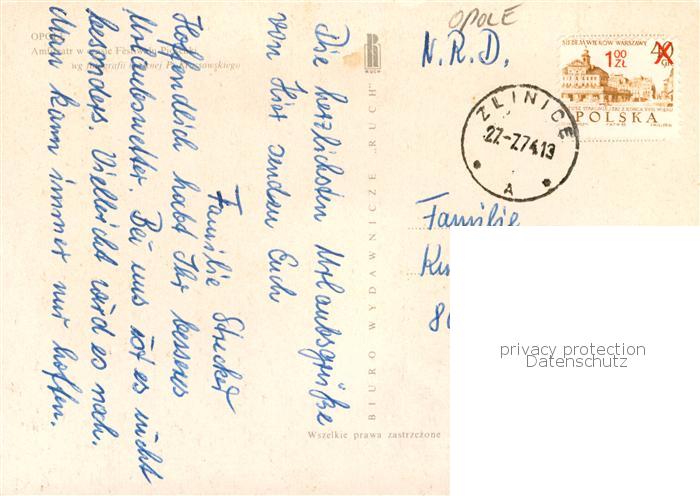 OPOLE
OPO
Amfiteatr w czasie Festiwalu Piosenki
wg fotografii
RUCH
N.R.D.
SIEDEM WIEKÓW WARSZAWY
40 GR
1,00 ZŁ
POLSKA
ZLINICE
27.-7.74.13
A
Die herzlichsten Urlaubsgrüße
von hier senden Euch
Familie Strecker
Hoffendlich habt Ihr besseres
Urlaubswetter. Bei uns ist es nicht
besonders. Vielleicht wird es noch.
Man kann immer nur hoffen.
BIURO WYDAWNICZE „RUCH"
Familie
Ku
80
privacy protection
Datenschutz
Wszelkie prawa zastrzeżone